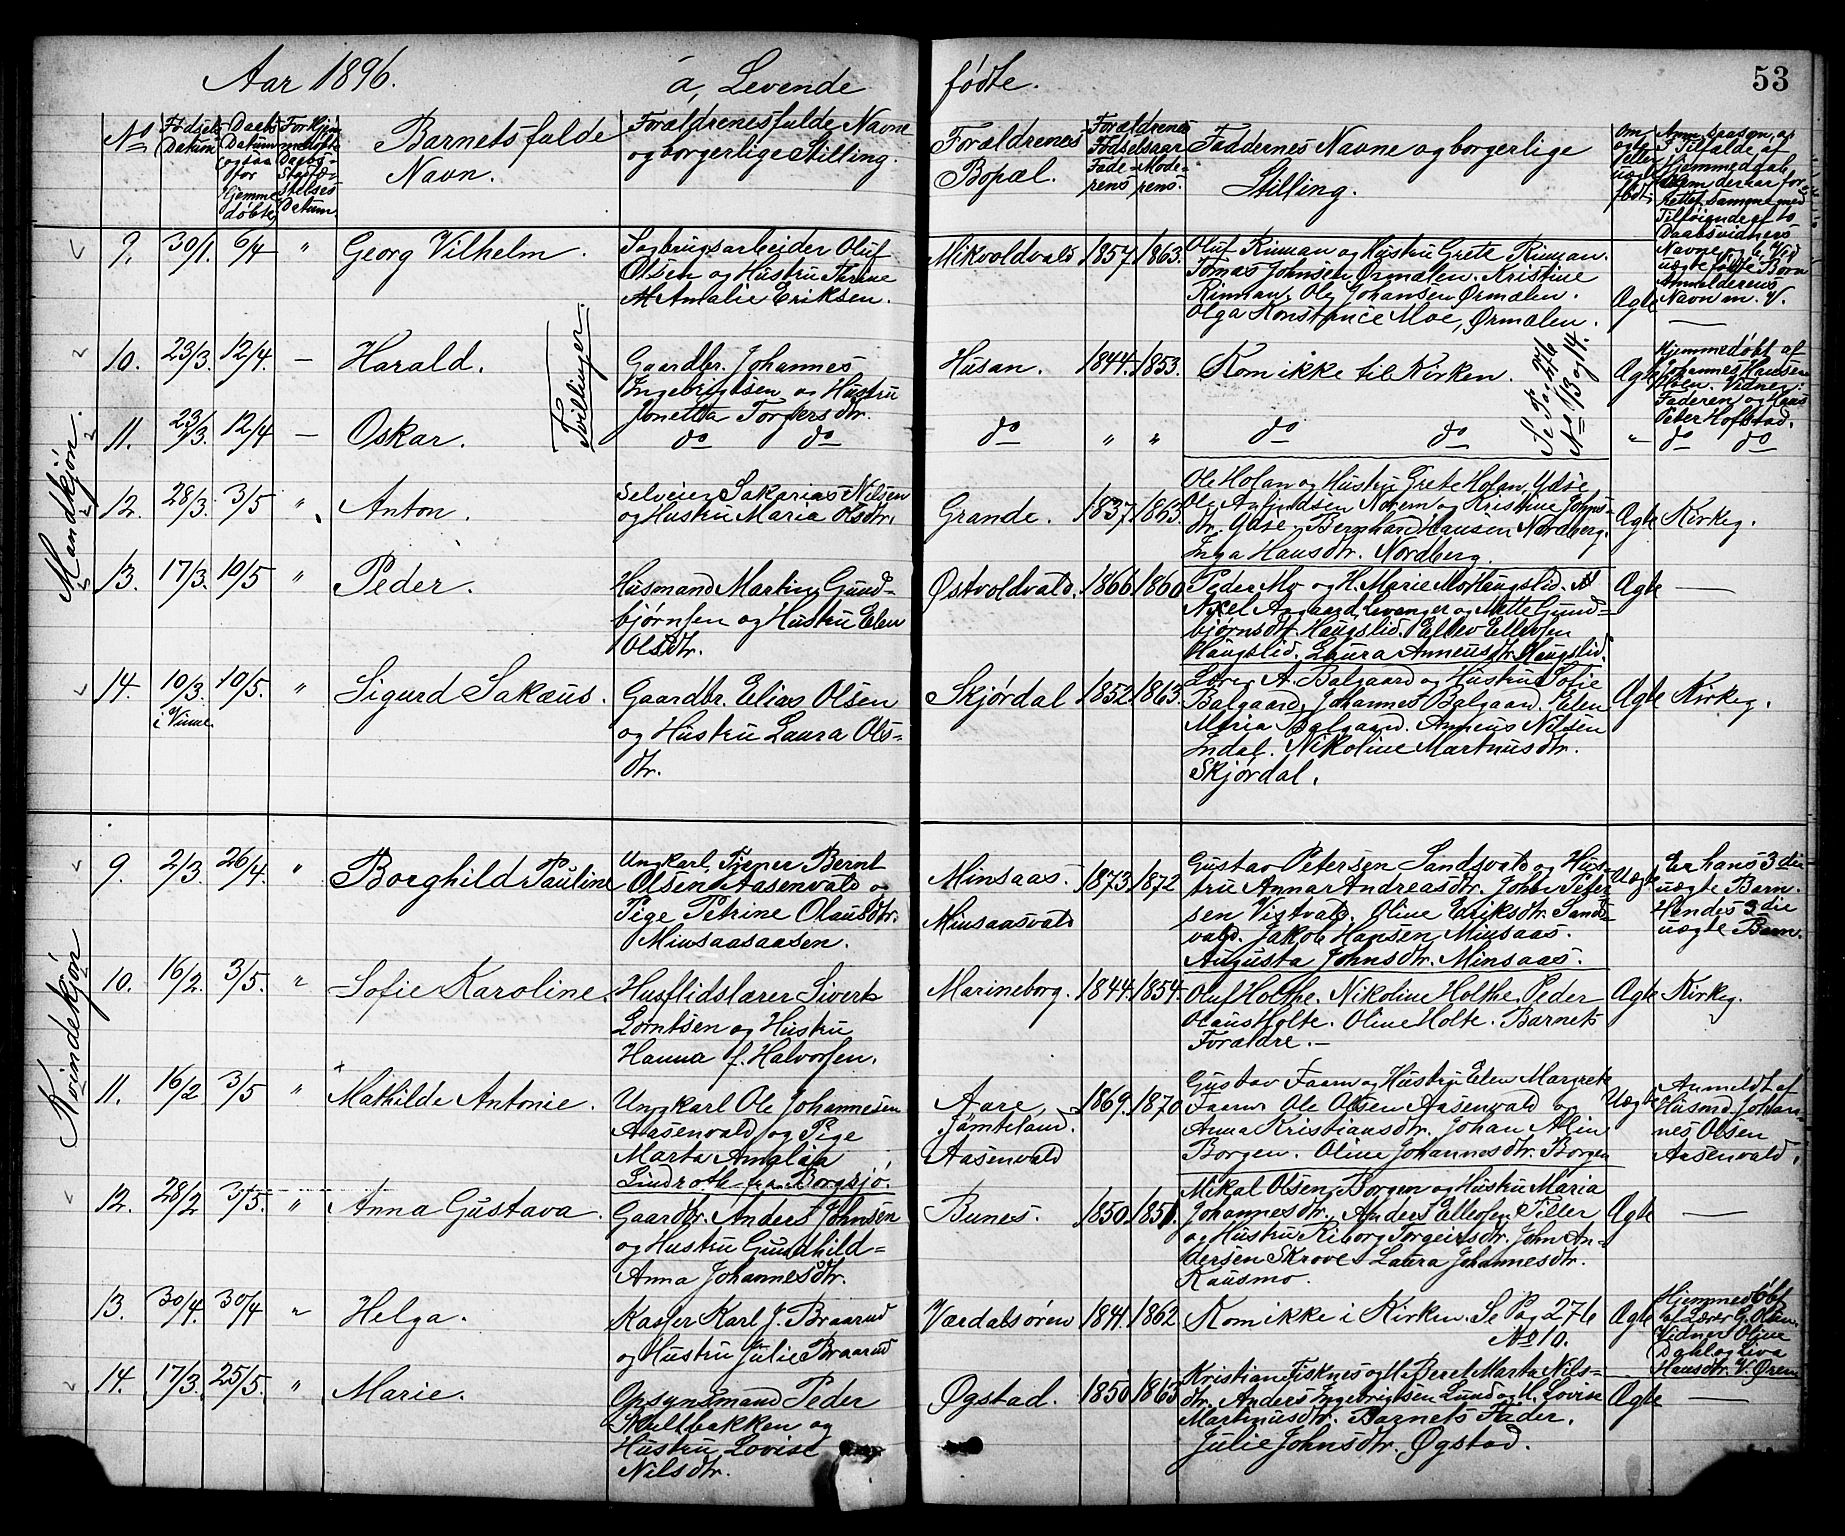 Aar 1896.
a, Levende
fødte.
53
No
Fødsels Datum
Daabs Datum ogsaa for Hjemmedøbte
Barnets fulde Navn.
Forældrenes fulde Navne og borgerlige Stilling.
Forældrenes Bopæl.
Forældrenes Fødselsaar Faderens Moderens.
Faddernes Navne og borgerlige Stilling.
Mandkjøn.
9. 30/1. 6/4 " Georg Vilhelm.
Sagbrugsarbeider Oluf
Olsen og Hustru Therine
Amalie Eriksen.
Mikvoldvald 1857. 1863.
Oluf Rinman og Hustru Grete Rinman.
Tomas Johnsen Ørmælen. Kristine
Rinman. Ole Johansen Ørmælen.
Olga Konstance Moe, Ørmælen.
Ægte —
10. 23/3. 12/4. — Harald.
Tvillinger
Gaardbr. Johannes
Ingebrigtsen og Hustru
Jonetta Torgersdtr.
Husan. 1844. 1853.
Kom ikke til Kirken.
Se Pag. 276
No 13 og 14.
Ægte
Hjemmedøbt af
Johannes Hansen
Moen. Vidner:
Faderen og Hans
Peter Hofstad.
11. 23/3. 12/4 — Oskar. do do
do " " do do " do do
12. 28/3. 3/5 " Anton.
Selveier Sakarias Nilsen
og Hustru Maria Olsdtr.
Grande. 1837. 1863.
Ole Holan og Hustru Grete Holan, Ydse
Ole Arfindsen Norem og Kristine Johns-
dtr. Ydse. Bernhard Hansen Nordberg.
Inga Hansdtr. Nordberg.
Ægte Kirkeg.
13. 17/3. 10/5 " Peder.
Husmand Martin Gund-
bjørnsen og Hustru Elen
Olsdtr.
Østvoldvald. 1866. 1860
Peder Mo og H. Marie Mo Haugslid.
Axel Aagaard, Levanger og Mette Gund-
bjørnsdtr. Haugslid. Ellev Ellevsen
Haugslid. Laura Anneusdtr. Haugslid.
Ægte —
14. 10/3. 10/5. " Sigurd Sakæus.
i Vinne
Gaardbr. Elias Olsen
og Hustru Laura Ols-
dtr.
Skjørdal 1852. 1863.
Lærer A. Balgaard og Hustru Sofie
Balgaard. Johannes Balgaard. Elen
Maria Balgaard. Anneus Nilsen
Indal. Nikoline Martinusdtr.
Skjørdal.
Ægte Kirkeg.
Kvindekjøn
9. 2/3. 26/4. " Borghild Pauline
Ungkarl, Tjener Bernt
Olsen Aasenvald og
Pige Petrine Olausdtr.
Minsaasaasen.
Minsaas.
Minsaasvald
1873. 1872
Gustav Petersen Sandsvald og Hus-
tru Anna Andreasdtr. John Peter-
sen Vistvald. Oline Eriksdtr. Sands-
vald. Jakob Hansen Minsaas.
Augusta Johnsdtr. Minsaas.
Uægte
Er hans 3die
uægte Barn.
Hendes 3die
uægte Barn.
10. 16/2. 3/5. " Sofie Karoline.
Husflidslærer Sivert
Lorntsen og Hustru
Hanna f. Halvorsen.
Marineborg. 1844. 1854.
Oluf Holthe. Nikoline Holthe. Peder
Olaus Holte. Oline Holte. Barnets
Forældre. —
Ægte Kirkeg.
11. 16/2 3/5 " Mathilde Antonie.
Ungkarl Ole Johannesen
Aasenvald og Pige
Marta Amalia
Lindroth fra Borgsjö.
Aare,
Jämteland.
Aasenvald
1869. 1870
Gustav Faaren og Hustru Elen Margrete
Faaren. Ole Olsen Aasenvald og
Anna Kristiansdtr. Johan Alin
Borgen. Oline Johannesdtr. Borgen
Uægte
Anmeldt af
Husmd. Johan-
nes Olsen
Aasenvald.
12. 28/2 3/5. " Anna Gustava.
Gaardbr. Anders Johnsen
og Hustru Gundhild
Anna Johannesdtr.
Bunes. 1850. 1851.
Mikal Olsen Borgen og Hustru Maria
Johannesdtr. Anders Ellevsen Tiller
og Hustru Riborg Torgeirsdtr. John An-
dersen Skrove. Laura Johannesdtr.
Kausmo.
Ægte —
13. 30/4. 30/4 " Helga.
Kaster Karl J. Braarud
og Hustru Julie Braarud
Værdalsøren 1841. 1862
Kom ikke i Kirken. Se Pag 276
No 10.
Ægte
Hjemmedøbt
af Lærer G. Olsen.
Vidner Oline
Dahl og Liva
Hansdtr. V. Øren
14. 17/3. 25/5. " Marie.
Opsynsmand Peder
Skultbakken og
Hustru Lovise
Nilsdtr.
Øgstad. 1850. 1863
Kristian Fisknes og H. Beret Marta Nils-
dtr. Anders Ingebrigtsen Lund og H. Lovise
Martinusdtr. Barnets Fader.
Julie Johnsdtr. Øgstad.
Ægte —